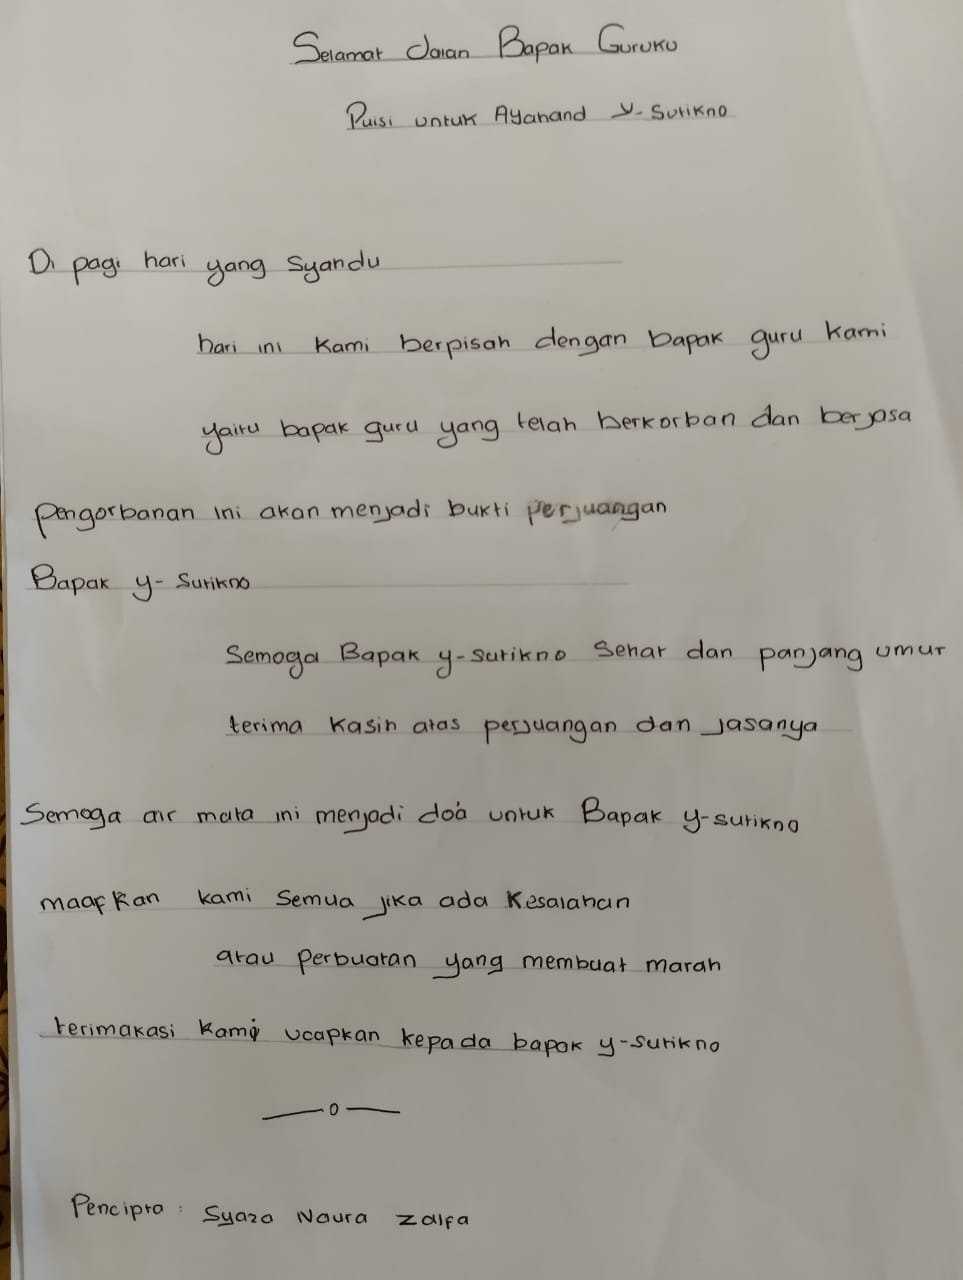 Selamat Jalan Bapak Guruku
Puisi untuk Ayahand y-Sutikno
Di pagi hari yang Syandu
hari ini kami berpisah dengan bapak guru kami
yaitu bapak guru yang telah berkorban dan berjasa
pengorbanan ini akan menjadi bukti perjuangan
Bapak y-Sutikno
Semoga Bapak y-sutikno Sehat dan panjang umur
terima kasih atas perjuangan dan jasanya
Semoga air mata ini menjadi do'a untuk Bapak y-sutikno
maafkan kami Semua jika ada kesalahan
atau perbuatan yang membuat marah
terimakasi kami ucapkan kepada bapak y-sutikno
—o—
Pencipta : Syaza Naura Zalfa